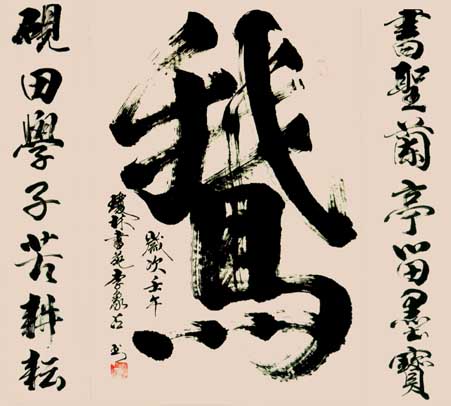 書聖蘭亭留墨寶
鵞
歲次壬午
書苑李
硯田學子苦耕耘